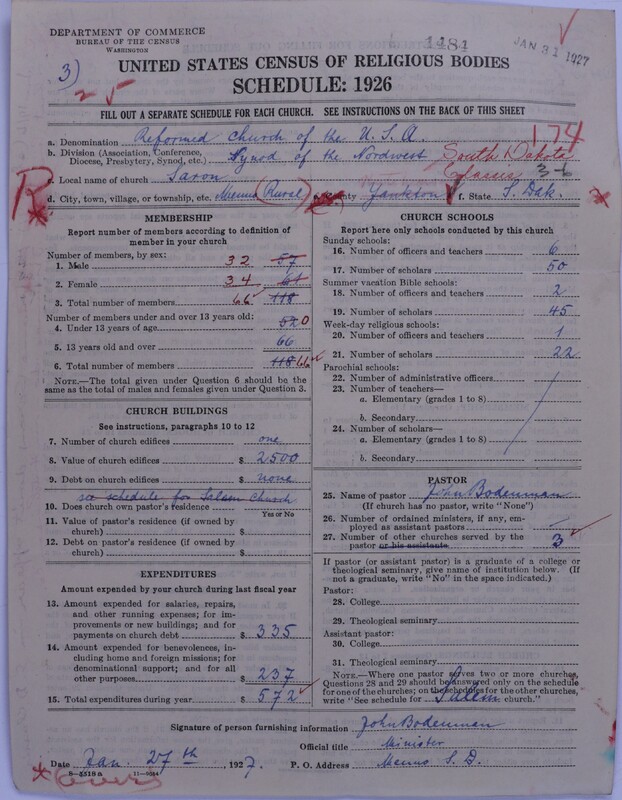 DEPARTMENT OF COMMERCE
BUREAU OF THE CENSUS
WASHINGTON
1484
JAN 31 1927
3)
UNITED STATES CENSUS OF RELIGIOUS BODIES
SCHEDULE: 1926
25
FILL OUT A SEPARATE SCHEDULE FOR EACH CHURCH. SEE INSTRUCTIONS ON THE BACK OF THIS SHEET
174
a. Denomination Reformed Church of the U.S.A.
b. Division (Association, Conference, Diocese, Presbytery, Synod, etc.) Synod of the Nordwest South Dakota Classis
3-6
R
c. Local name of church Saron
d. City, town, village, or township, etc. Menno (Rural) e. County Yankton f. State S. Dak.
MEMBERSHIP
Report number of members according to definition of
member in your church
Number of members, by sex:
1. Male 32 57
2. Female 34 61
3. Total number of members 66 118
Number of members under and over 13 years old:
4. Under 13 years of age 52 0
5. 13 years old and over 66
6. Total number of members 118 66
NOTE.—The total given under Question 6 should be the
same as the total of males and females given under Question 3.
CHURCH BUILDINGS
See instructions, paragraphs 10 to 12
7. Number of church edifices one
8. Value of church edifices $ 2500
9. Debt on church edifices $ none
see schedule for Salem Church
10. Does church own pastor's residence
Yes or No
11. Value of pastor's residence (if owned by
church) $
12. Debt on pastor's residence (if owned by
church) $
EXPENDITURES
Amount expended by your church during last fiscal year
13. Amount expended for salaries, repairs,
and other running expenses; for im-
provements or new buildings; and for
payments on church debt $ 335
14. Amount expended for benevolences, in-
cluding home and foreign missions; for
denominational support; and for all
other purposes $ 237
15. Total expenditures during year $ 572
CHURCH SCHOOLS
Report here only schools conducted by this church
Sunday schools:
16. Number of officers and teachers 6
17. Number of scholars 50
Summer vacation Bible schools:
18. Number of officers and teachers 2
19. Number of scholars 45
Week-day religious schools:
20. Number of officers and teachers 1
21. Number of scholars 22
Parochial schools:
22. Number of administrative officers
23. Number of teachers—
a. Elementary (grades 1 to 8)
b. Secondary
24. Number of scholars—
a. Elementary (grades 1 to 8)
b. Secondary
PASTOR
25. Name of pastor John Bodenman
(If church has no pastor, write "None")
26. Number of ordained ministers, if any, em-
ployed as assistant pastors
27. Number of other churches served by the
pastor or his assistants 3
If pastor (or assistant pastor) is a graduate of a college or
theological seminary, give name of institution below. (If
not a graduate, write "No" in the space indicated.)
Pastor:
28. College
29. Theological seminary
Assistant pastor:
30. College
31. Theological seminary
NOTE.—Where one pastor serves two or more churches,
Questions 28 and 29 should be answered only on the schedule
for one of the churches; on the schedules for the other churches,
write "See schedule for Salem church."
Signature of person furnishing information John Bodenman
Official title Minister
Date Jan. 27th, 1927. P. O. Address Menno S. D.
8—5518a 11—9084